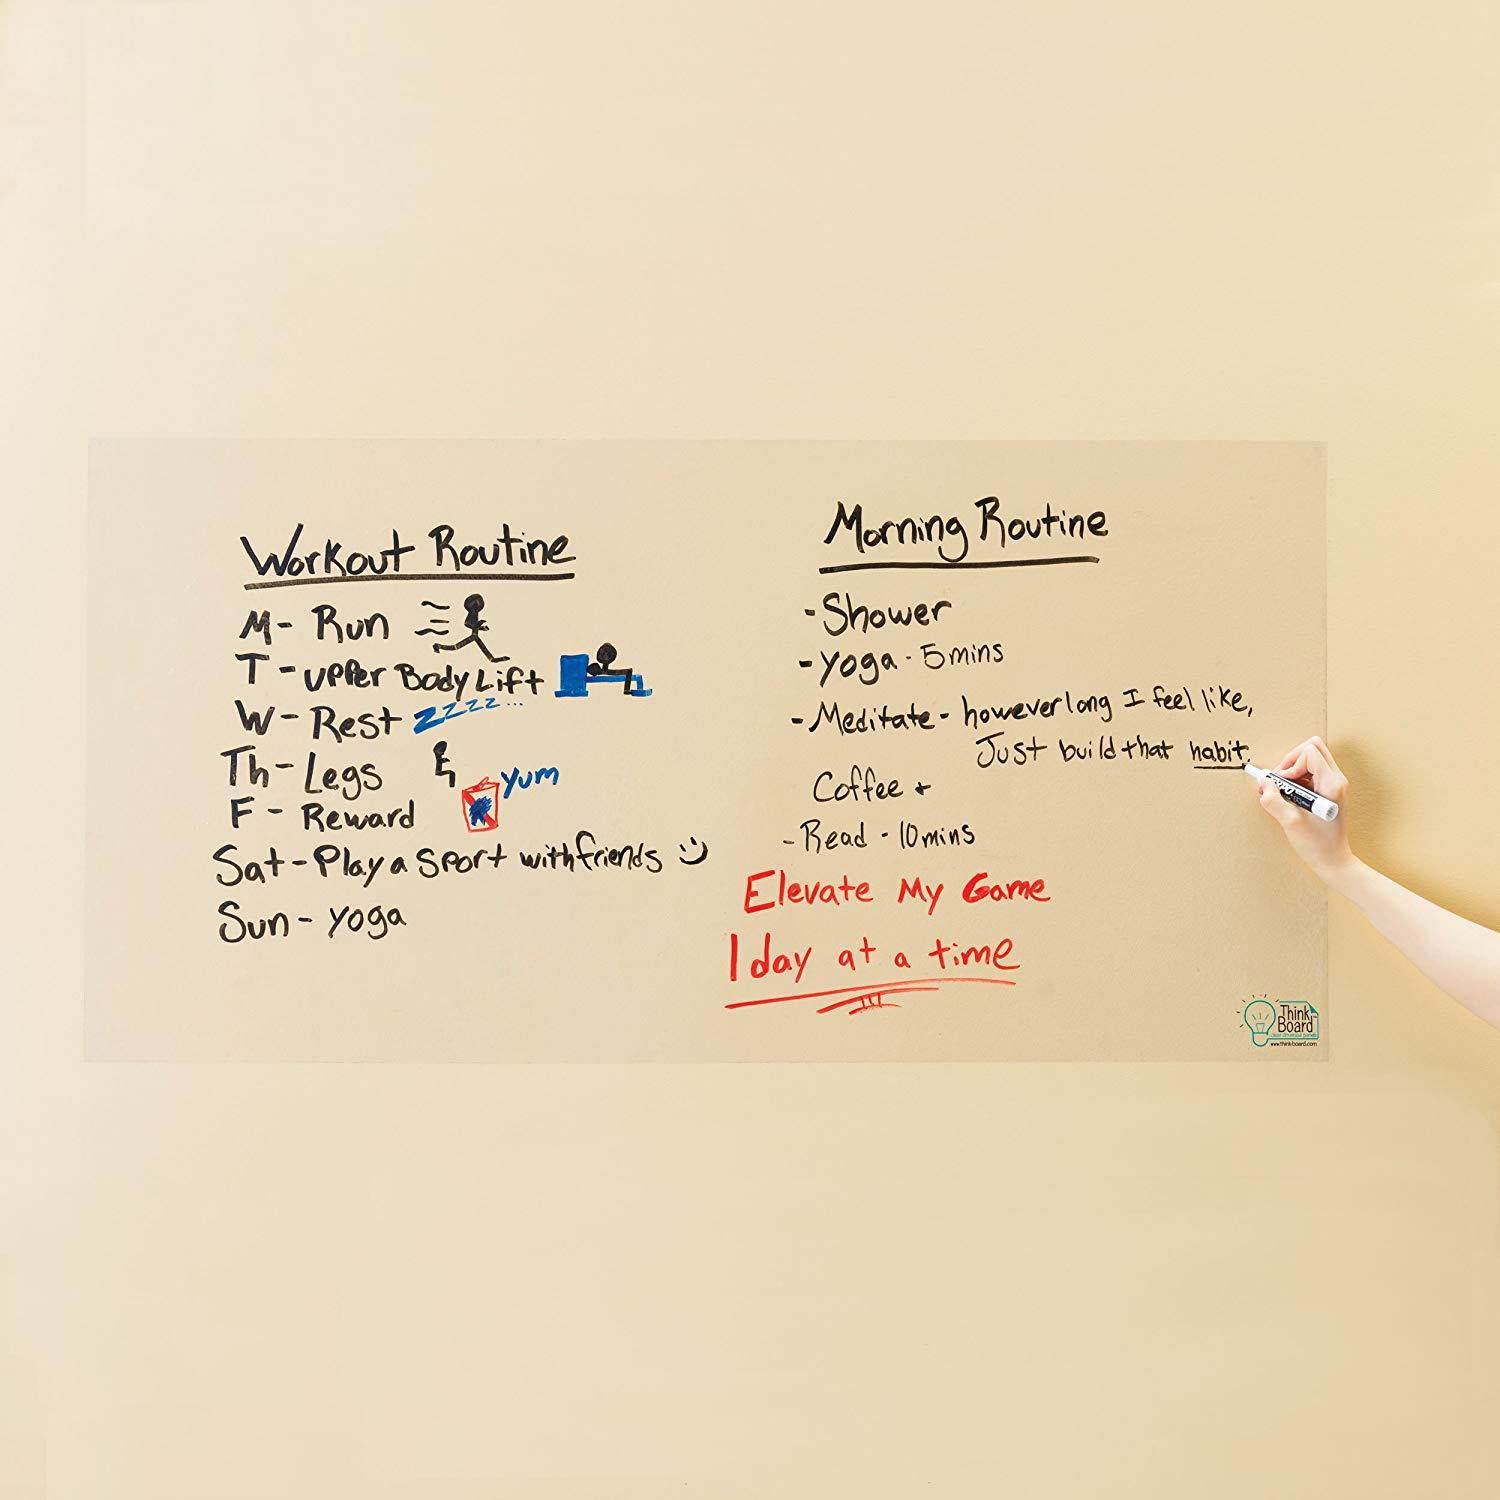 Workout Routine
M- Run
T - upper Body Lift
W - Rest zzzz...
Th - Legs
yum
F - Reward
Sat - Play a Sport with friends :)
Sun - yoga
Morning Routine
- Shower
- Yoga - 5 mins
- Meditate - however long I feel like,
Just build that habit.
Coffee +
- Read - 10 mins
Elevate My Game
1 day at a time
Think
Board
www.think-board.com